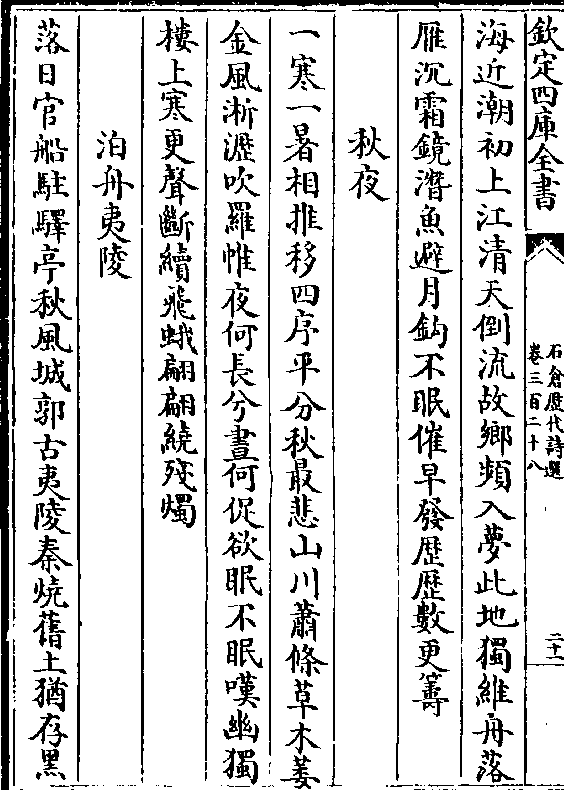 欽定四庫全書
石倉歷代詩選
卷三百二十八
二十一
海近潮初上江清天倒流故鄉頻入夢此地獨維舟落
雁沉霜鏡潛魚避月鈎不眠催早發歴歴數更籌
秋夜
一寒一暑相推移四序平分秋最悲山川蕭條草木萎
金風淅瀝吹羅帷夜何長兮晝何促欲眠不眠嘆幽獨
樓上寒更聲斷續飛蛾翩翩繞殘燭
泊舟夷陵
落日官船駐驛亭秋風城郭古夷陵秦燒舊土猶存黑